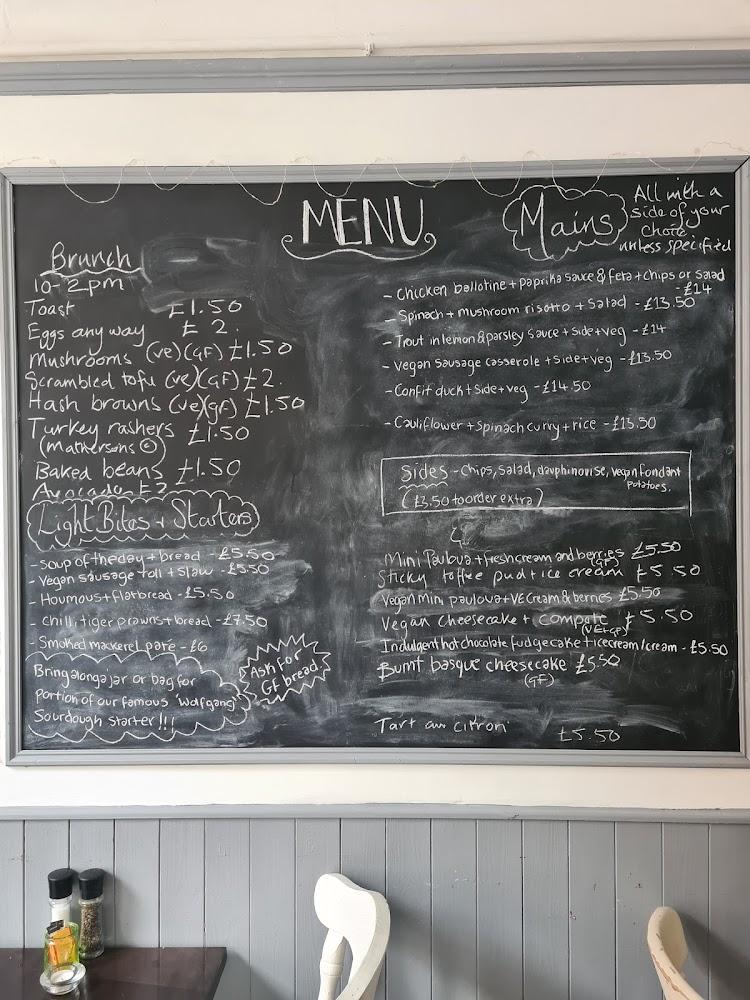 MENU
Brunch
10-2pm
Toast £1.50
Eggs any way £2.
Mushrooms (ve)(GF) £1.50
Scrambled tofu (ve)(GF) £2.
Hash browns (ve)(gf) £1.50
Turkey rashers £1.50
(Mathersons ©)
Baked beans £1.50
Avocado £2
Light Bites + Starters
- Soup of the day + bread - £5.50
- Vegan sausage roll + slaw - £5.50
- Houmous + flatbread - £5.50
- Chilli tiger prawns + bread - £7.50
- Smoked mackerel pate - £6
Bring along a jar or bag for
portion of our famous 'Wolfgang'
Sourdough starter!!!
Ask for
GF bread
Mains
All with a
side of your
choice
unless specified
- Chicken ballotine + paprika sauce & feta + chips or salad
- £14
- Spinach + mushroom risotto + Salad - £13.50
- Trout in lemon & parsley sauce + side + veg - £14
- Vegan sausage casserole + side + veg - £13.50
- Confit duck + side + veg - £14.50
- Cauliflower + spinach curry + rice - £13.50
Sides - Chips, salad, dauphinoise, vegan fondant
potatoes.
(£3.50 to order extra)
Mini Pavlova + fresh cream and berries £5.50
(GF)
Sticky toffee pud + ice cream £5.50
Vegan mini pavlova + VE Cream & berries £5.50
Vegan Cheesecake + compote £5.50
(VE+GF)
Indulgent hot chocolate fudgecake + icecream/cream - £5.50
Burnt basque cheesecake £5.50
(GF)
Tart au citron £5.50